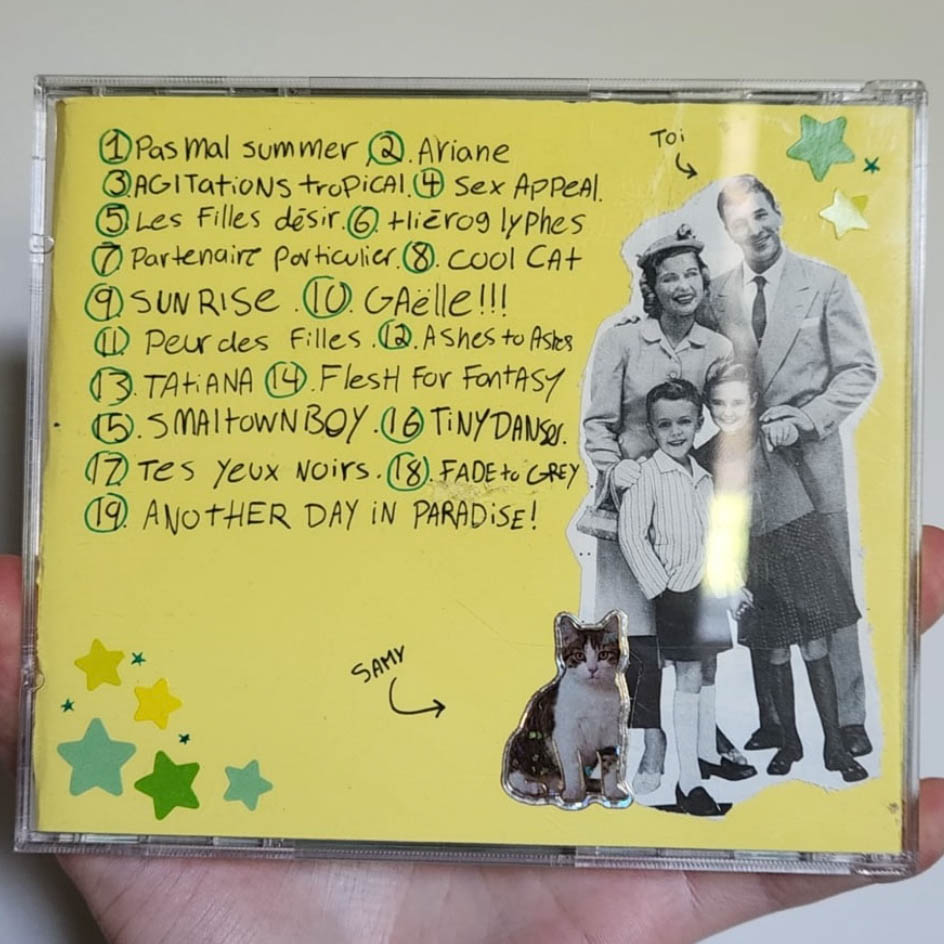 ① Pas mal summer, ②. Ariane
③ AGITATIONS tROPICAL. ④ Sex APPeAL.
⑤ Les Filles désir. ⑥. Hiéroglyphes
⑦. Partenaire Particulier. ⑧. COOL CAt
⑨. SUNRISe. ⑩. GAëlle!!!
⑪. Peur des Filles. ⑫. AShes to Ashes
⑬. TAtiANA ⑭. FlesH For FantASY
⑮. SMAltOWN BOY. ⑯ TiNY DANSer.
⑰ Tes Yeux Noirs. ⑱. FADE to GREY
⑲. ANOtHER DAY iN PARADiSe!
Toi
SAMY